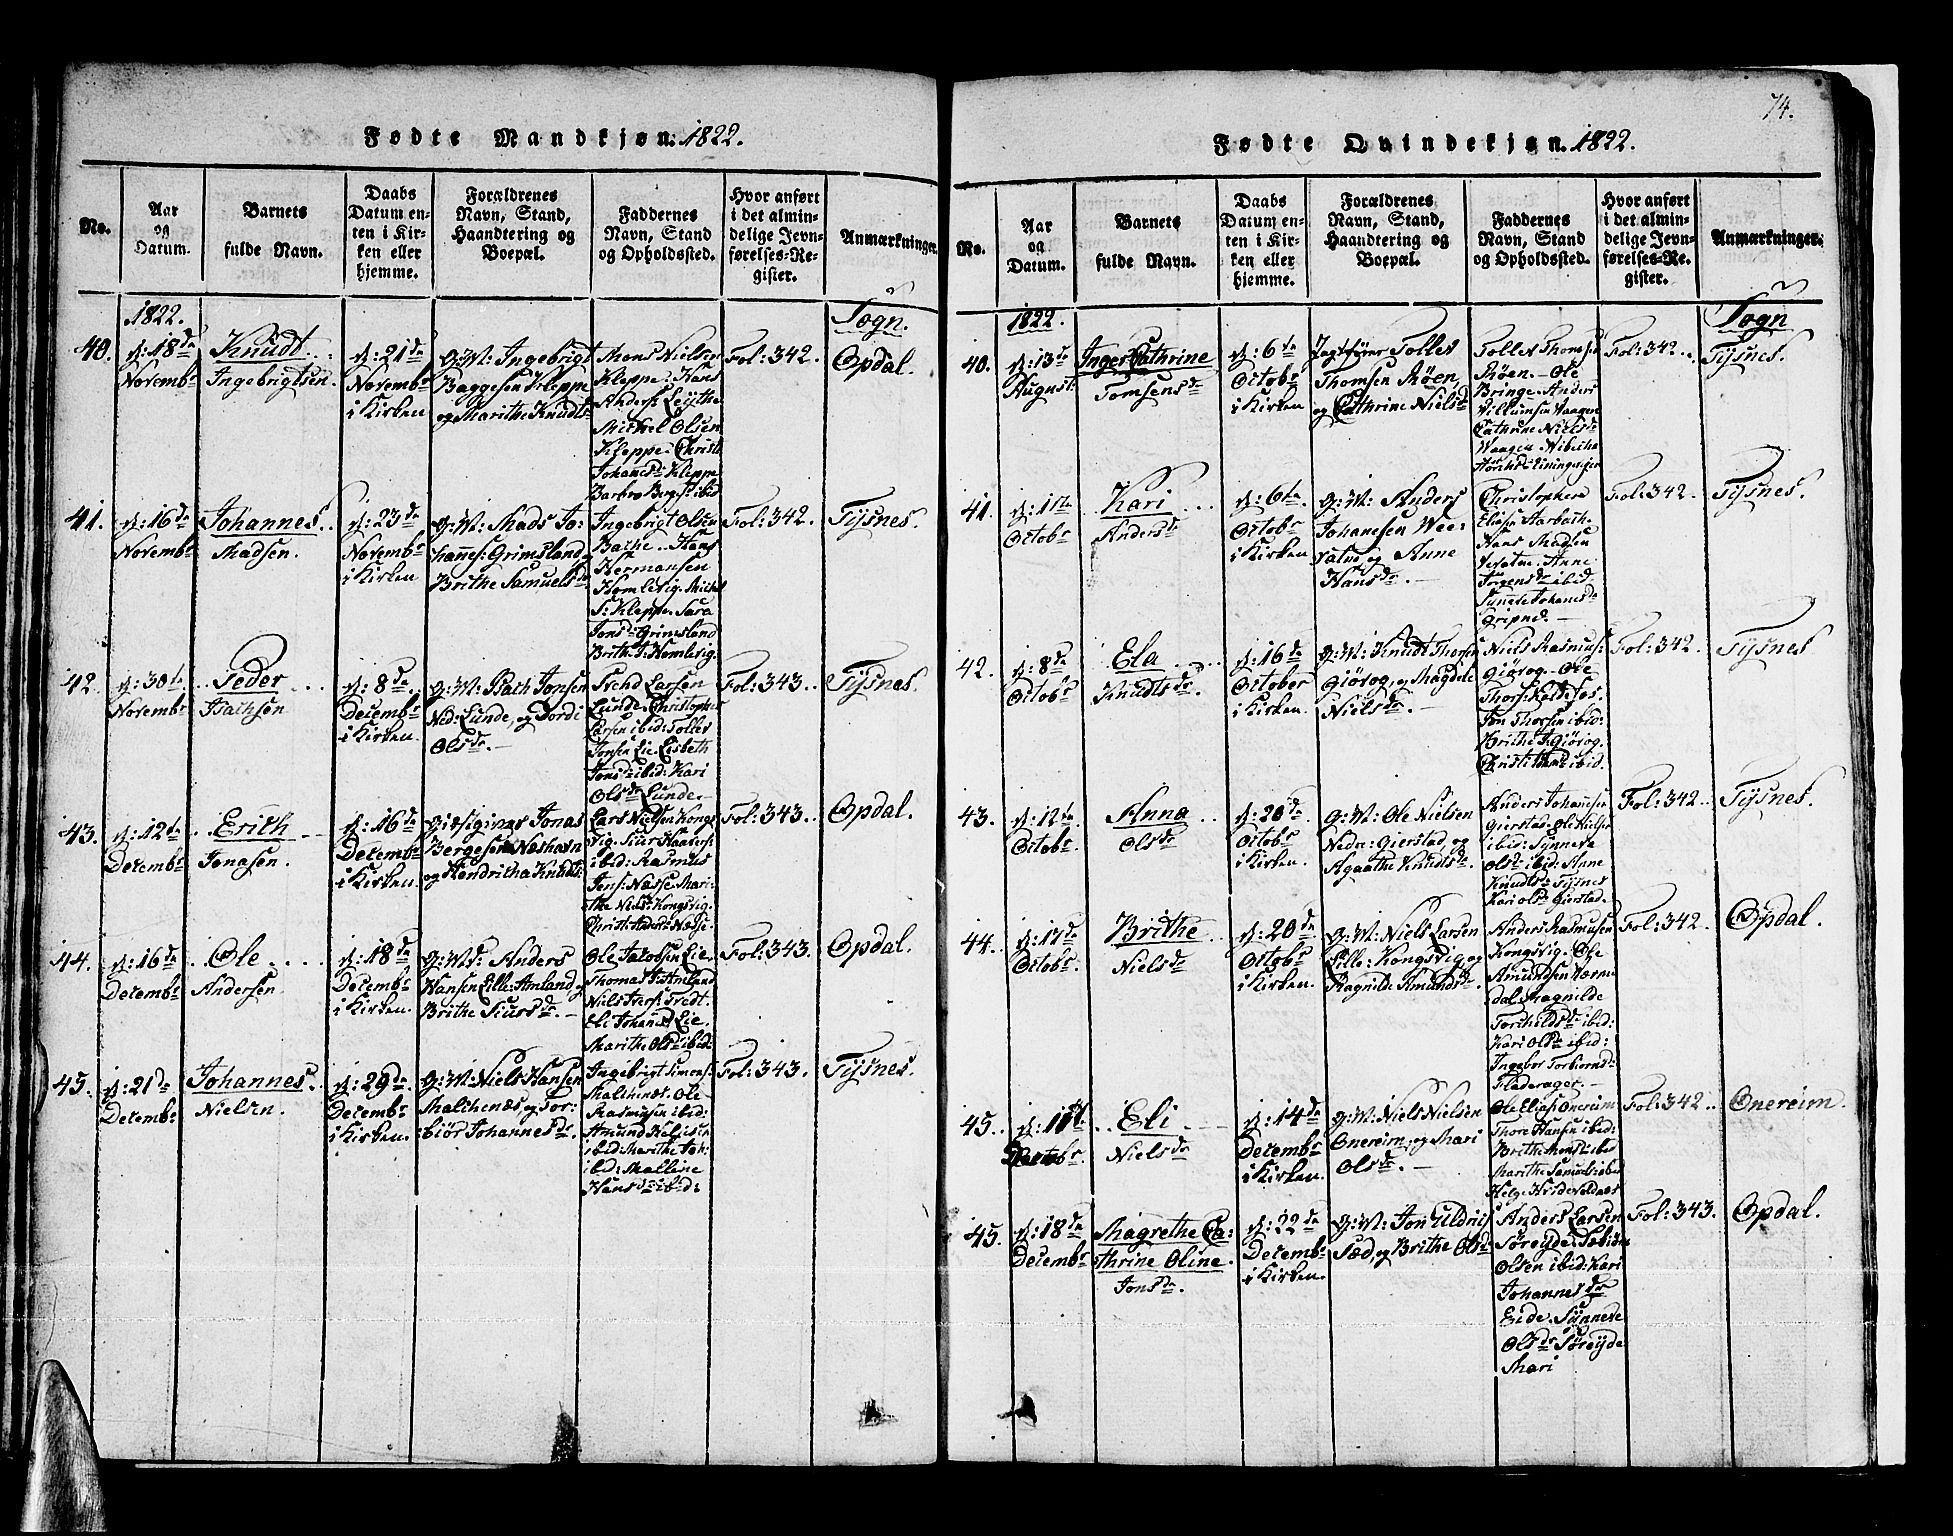 Fødte Mandkjøn: 1822.
No.
Aar
og
Datum.
Barnets
fulde Navn.
Daabs
Datum en-
ten i Kir-
ken eller
hjemme.
Forældrenes
Navn, Stand,
Haandtering og
Boepæl.
Faddernes
Navn, Stand
og Opholdssted.
Hvor anført
i det almin-
delige Jevn-
førelses-Re-
gister.
Anmærkninger.
1822.
Sogn.
40.
d: 18de
Novembr
Knudt
Ingebrigtsen.
d: 21de
Novembr
i Kirken
g: M: Ingebrigt
Baggesen Kleppe
og Marithe Knudts
Mons Nielsen
Kleppe. Hans
Anders: Leijthe
Michel Olsen
Kleppe. Christi
Johansd: Kleppe
Fol: 342.
Opdal.
41.
d: 16de
Novembr
Johannes.
Madsen.
d: 23de
Novembr
i Kirken
g: M: Mads Jo-
hannes: Grimsland og
Brithe Samuelsdr
Ingebrigt Olsen
Bathe. Hans
Hermansen
Homlevig. Michel
S: Kleppe. Sara
Jonsdr Grimsland
Brithe J: Homlevig.
Fol: 342.
Tysnes.
42.
d: 30te
Novembr
Peder
d: 8de
Decembr
i Kirken.
Ned: Lunde, og Gordi
Olsdr.
Larsen
Lunde. Christopher
Larsen ibid: Tollev
Jonsen Lie. Lisbeth
Jonsdr ibid: Kari
Olsdr Lunde.
Fol: 343.
Tysnes.
43.
d: 12te
Decembr
Erich
Jonasen.
d: 16de
Decembr
i Kirken.
Jonas
Bergesen Næshavn
og Hendritha Knudts:
Lars Nielsen Kongs
vig. Siur Haavers:
ibid: Rasmus
Jens: Næsse. Mari-
the Niels: Kongsvig.
Fol: 343.
Opdal.
44.
d: 16de
Decembr
Ole
Andersen.
d: 18de
Decembr
i Kirken.
g: Md. Anders
Hansen Lille: Amland og
Brithe Siursdr.
Ole Jacobsen Lie.
Thomas J: Amland
Eli Johannesd Lie.
Marithe Olsdr ibid:
Fol: 343.
Opdal.
45.
d: 21de
Decembr
Johannes.
Nielsen.
d: 29de
Decembr
i Kirken.
g: M: Niels Hansen
Malchenæs, og Tor-
biør Johannesdr.
Ingebrigt Simons:
Malchenæs. Ole
Rasmusen ibid:
Amund Helgesen
ibid: Marithe Joh:
ibid: Malline
Hansdr ibid:
Fol: 343.
Tysnes.
74.
Fødte Qvindekjøn. 1822.
No.
Aar
og
Datum.
Barnets
fulde Navn.
Daabs
Datum en-
ten i Kir-
ken eller
hjemme.
Forældrenes
Navn, Stand,
Haandtering og
Boepæl.
Faddernes
Navn, Stand
og Opholdssted.
Hvor anført
i det almin-
delige Jevn-
førelses-Re-
gister.
Anmærkninger.
1822.
Sogn
40.
d: 13de
August:
Inger Cathrine
Tomsensdr
d: 6te
Octobr
i Kirken
Tollev
Thomsen Røen,
og Cathrine Nielsdr
Tollev Thomsen
Røen. Ole
Bringe. Anders
Villumsen Vaagen
Cathrine Nielsdr
Waagen.
Fol: 342.
Tysnes.
41.
Octobr
Kari
Andersdr
d: 6te
Octobr
i Kirken
g: M: Anders
Johanesen Wee-
og Anne
Hansdr.
Christopher
Elias: Aarbach.
Hans Madsen
Anne
Jørgensdr ibid.
Johanesdr
Gripne.
Fol: 342.
Tysnes.
42.
d: 8de
Octobr
Ela
Knudtsdr.
d: 16de
October
i Kirken.
g: M: Knudt Thorsen
Giørog, og Magdele
Nielsdr.
Niels Rasmus:
Giørog. Ole
Thors: Katsefos.
Jon Thorsen ibid:
Brithe J: Giørog.
Fol: 342.
Tysnes
43.
d: 12te
Octobr.
Anna
Olsdr
d: 20de
Octobr
i Kirken.
g: M: Ole Nielsen
Nedre: Gierstad, og
Agaathe Knudtsdr.
Anders Johannesen
Gierstad. Ole Nielsen
ibid: Synneve
Olsdr ibid: Anne
Knudtsdr Tysnes
Kari Olsdr Gierstad.
Fol: 342.
Tysnes.
44.
d: 17de
Octobr.
Brithe
Nielsdr
d: 20de
Octobr
i Kirken.
g: M: Niels Larsen
Lille: Kongsvig og
Ragnilde Amundsdr.
Anders Rasmusen
Kongsvig. Ole
Amundsen Værne
dal. Magnilde
Torchildsdr ibid:
Kari Olsdr ibid:
Ingebor Torbiornsd:
Fladerager.
Fol: 342.
Opdal.
45.
Eli
Nielsdr
d: 14de
Decembr
i Kirken.
g: M: Niels Nielsen
Onereim, og Mari
Olsdr.
Ole Elias: Onereim
Thore Hansen ibid:
Brithe Monsdr ibid
Marithe Samuels: ibid
Fol: 342.
Onereim.
45.
d: 18de
Decembr
Magrethe Ca-
thrine Oline.
Jonsdr.
d: 22de
Decembr
i Kirken.
g: M: Jon Uldrick
Sæd, og Brithe Olsdr
Anders Larsen
Søreyde.
Olsen ibid: Kari
Johannesdr
Eide. Synneve
Olsdr Søreyde
Mari
Fol: 343.
Opdal.